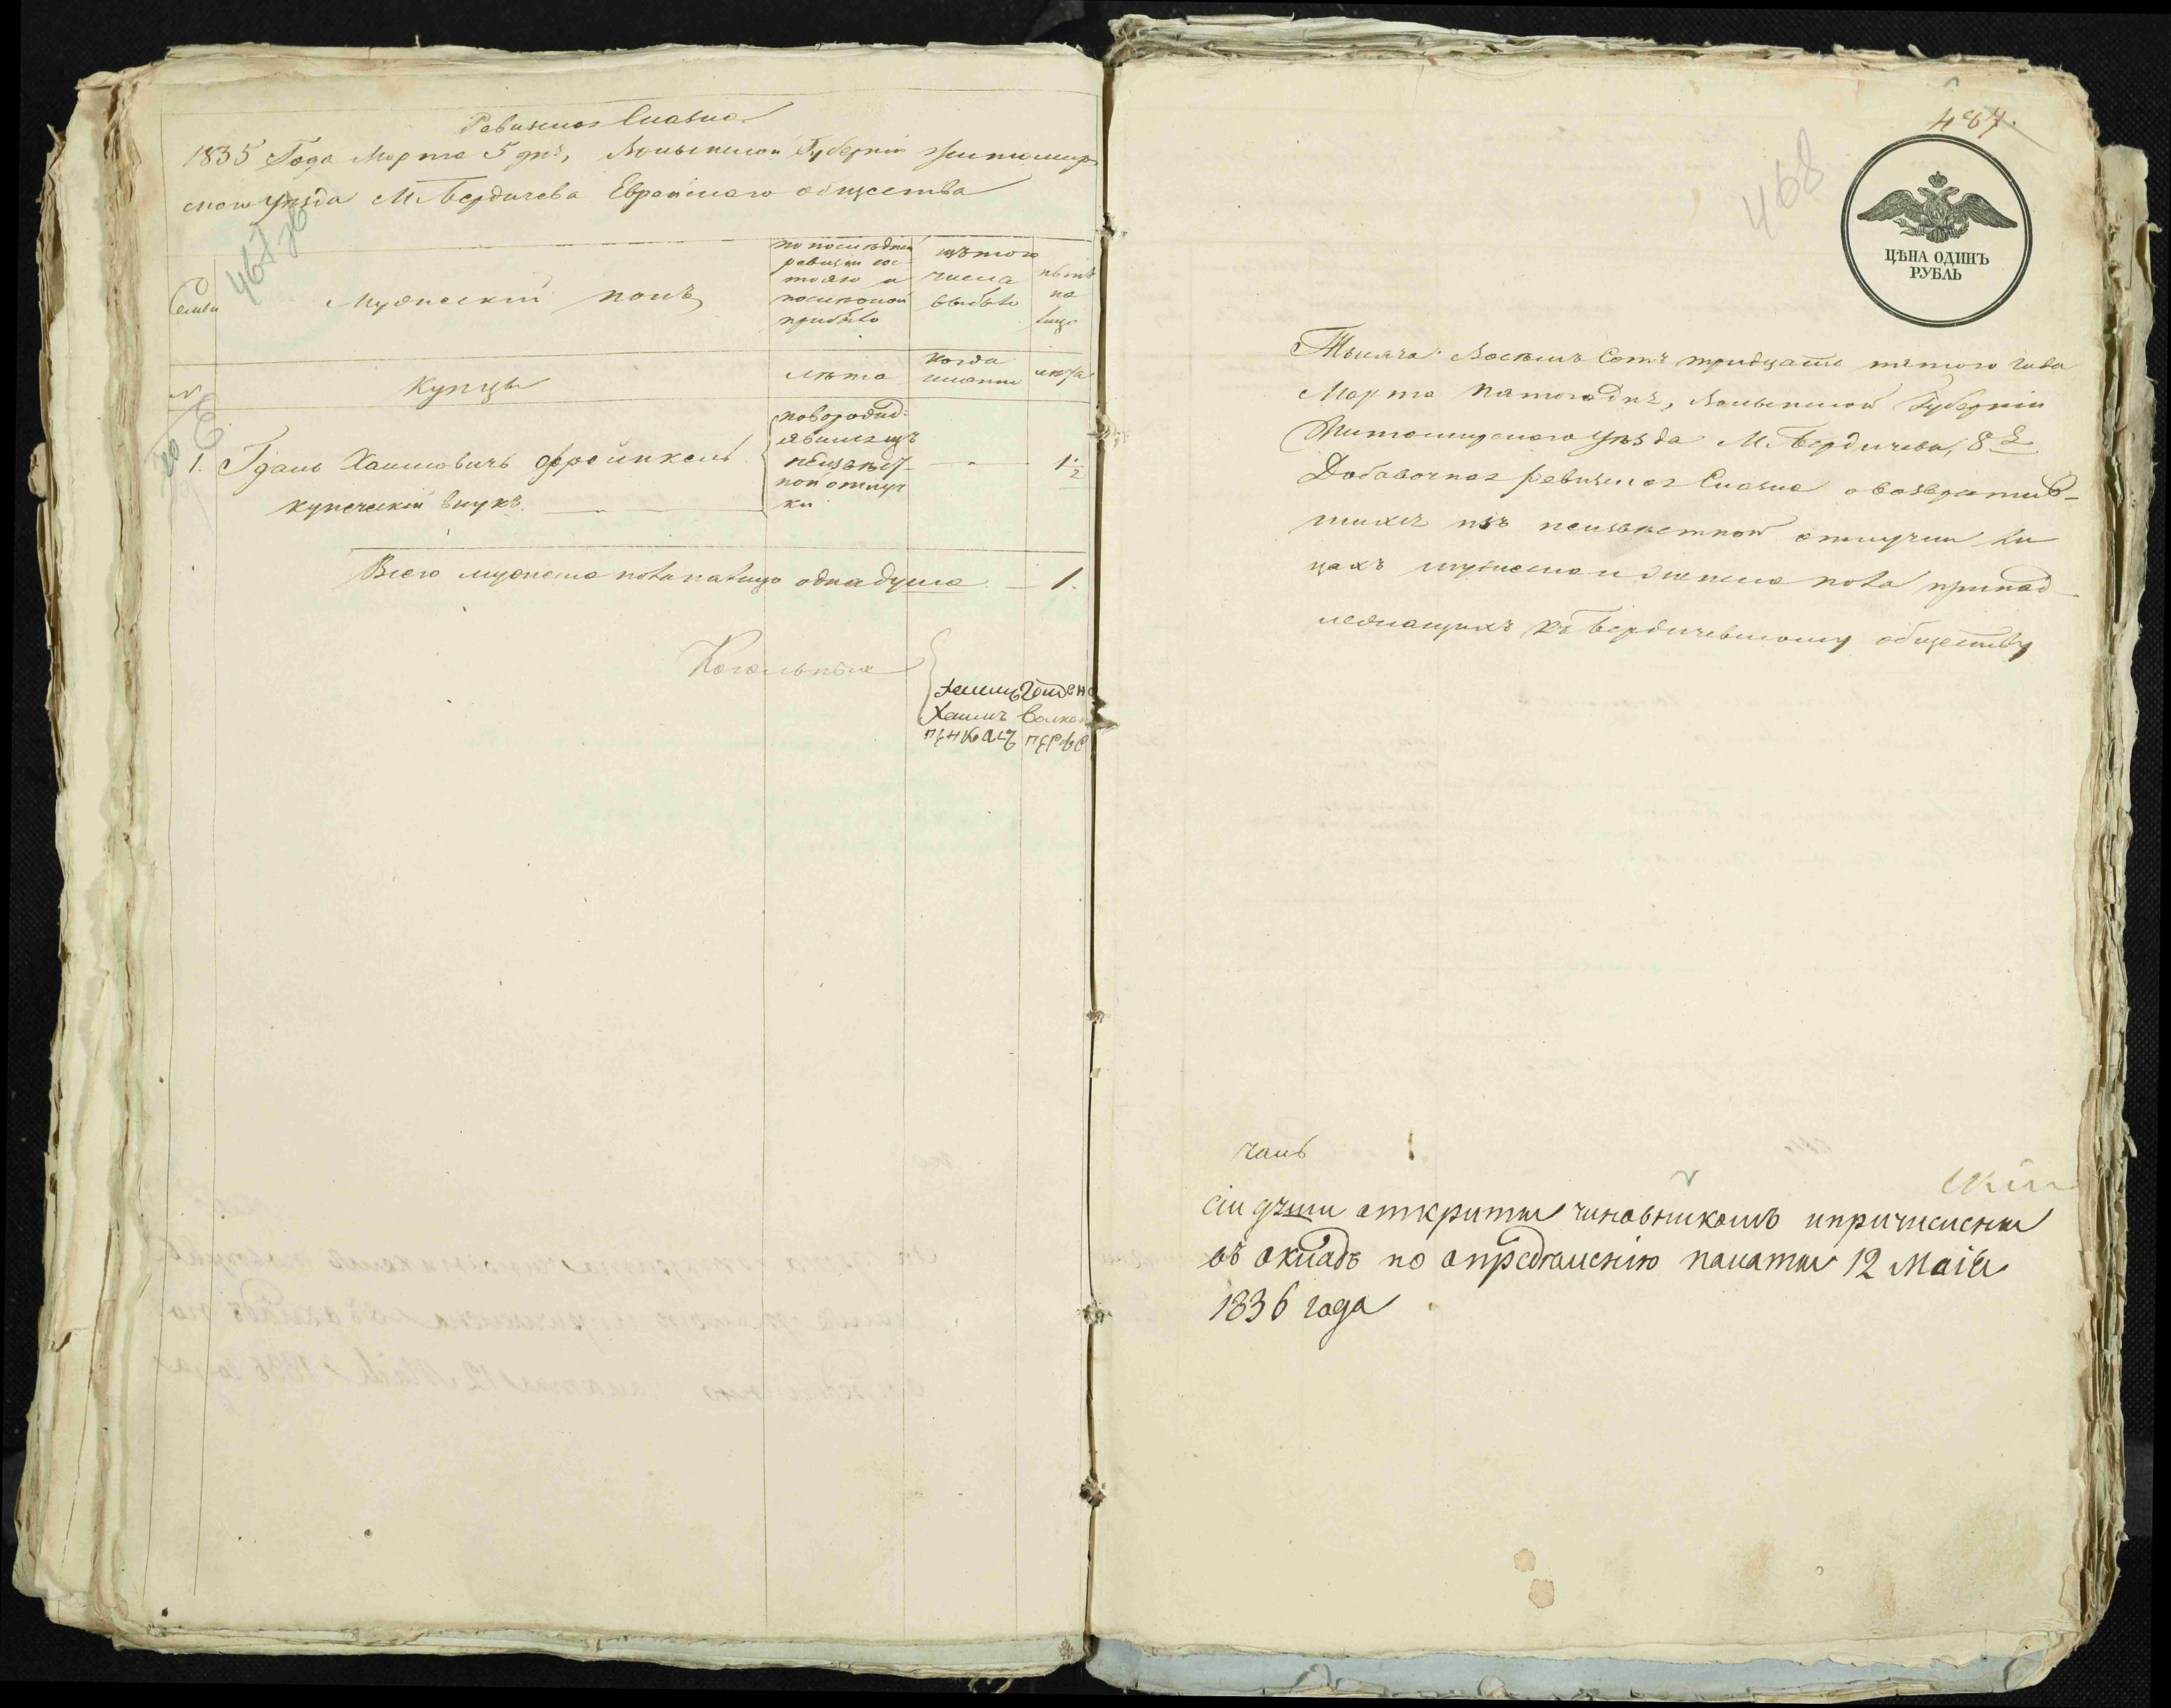 Ревизская Сказка
1835 Года Марта 5 дня, Волынской Губерніи Житомир
скаго уезда М. Бердичева Еврейскаго общества
Семьи
Мужескій полъ
по последней
ревизіи сос-
тояло и
после оной
прибыло
изъ того
числа
выбыло
ныне
на
лицо
№
Купцы
лета
когда
именно
лета
новорожд:
явившагъ
неизвест
ной отлуч
ки
1. Гдаль Хаимовичъ Френкель 1/2
купеческій внукъ.
Всего мужеска пола налицо одна душа — 1.
Кагальные
Хаимъ
Хаимъ Волков
пенкасъ
487.
468
ЦѢНА ОДИНЪ
РУБЛЬ
Тысяча Восемь Сотъ тридцать пятого года
Марта пятого дня, Волынской Губерніи
Житомирскаго уезда М. Бердичева, 8я
Добавочная ревизская Сказка о возвратив-
шихся изъ неизвестной отлучки ли
цахъ мужеска и женска пола принад
лежащихъ къ Бердичевскому обществу
сіи души открыты чиновникомъ и причислены
въ окладъ по определенію палаты 12 Маія
1836 года